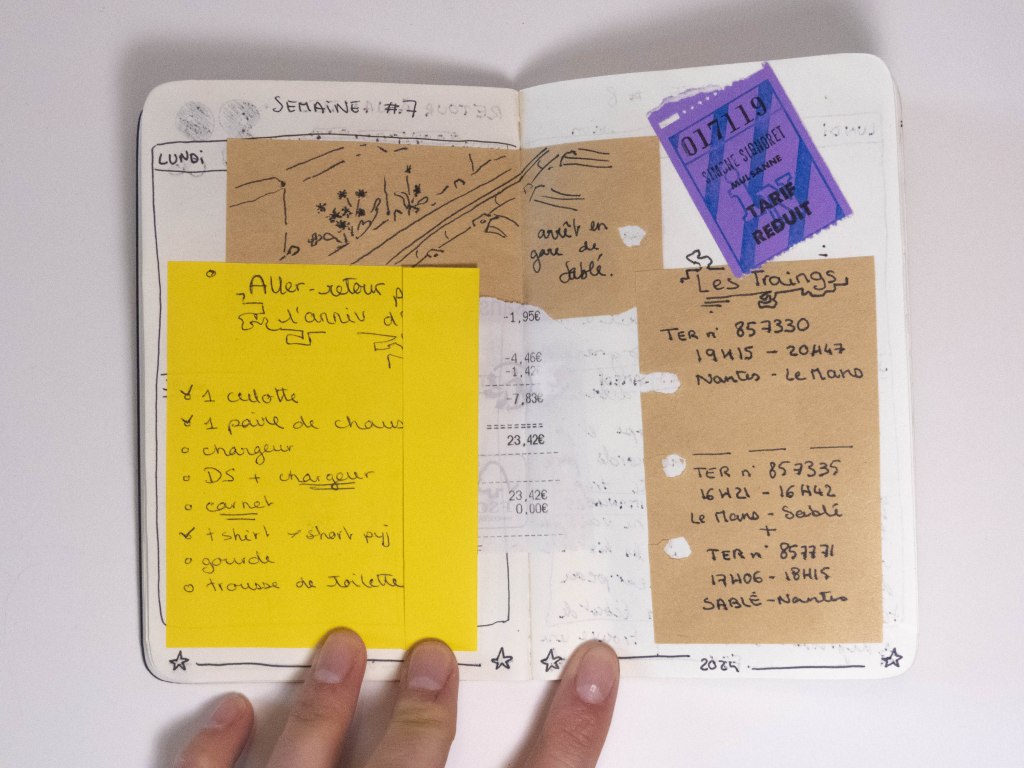 SEMAINE #.7
LUNDi
arrêt en
gare de
Sablé.
Aller-retour p
l'anniv d'
1 culotte
1 paire de chaus
chargeur
DS + chargeur
carnet
t shirt short pyj
gourde
trousse de toilette
-1,95€
-4,46€
-1,42
-7,83€
23,42€
23,42€
0,00€
017119
SIMONE SIGNORET
MULSANNE
TARIF
REDUIT
Les Traings
TER n° 857330
19H15 - 20H47
Nantes - Le Mans
TER n° 857335
16H21 - 16H42
Le Mans - Sablé
+
TER n° 857771
17H06 - 18H15
SABLÉ - Nantes
2024